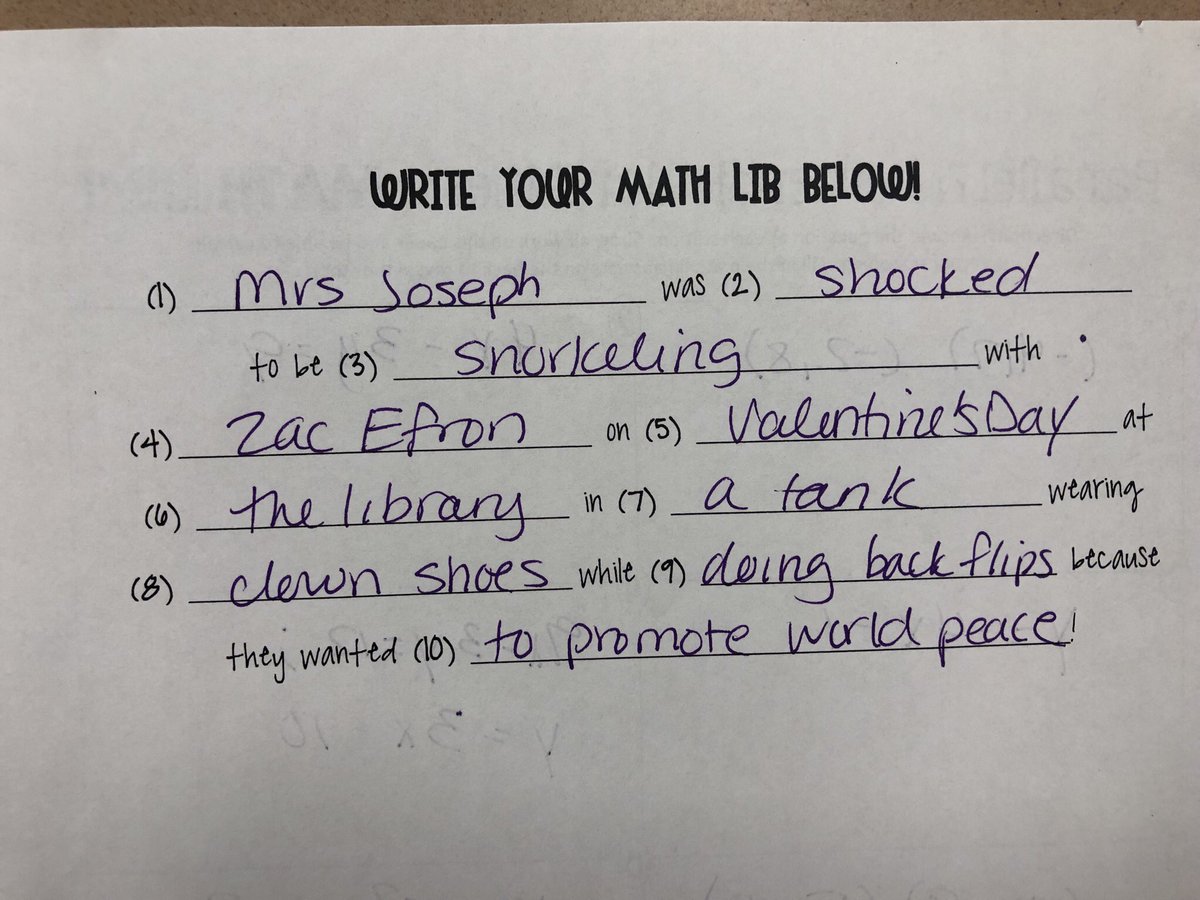 WRITE YOUR MATH LIB BELOW!
(1) Mrs Joseph was (2) shocked
to be (3) snorkeling with
(4) Zac Efron on (5) Valentine's Day at
(6) the library in (7) a tank wearing
(8) clown shoes while (9) doing back flips because
they wanted (10) to promote world peace!